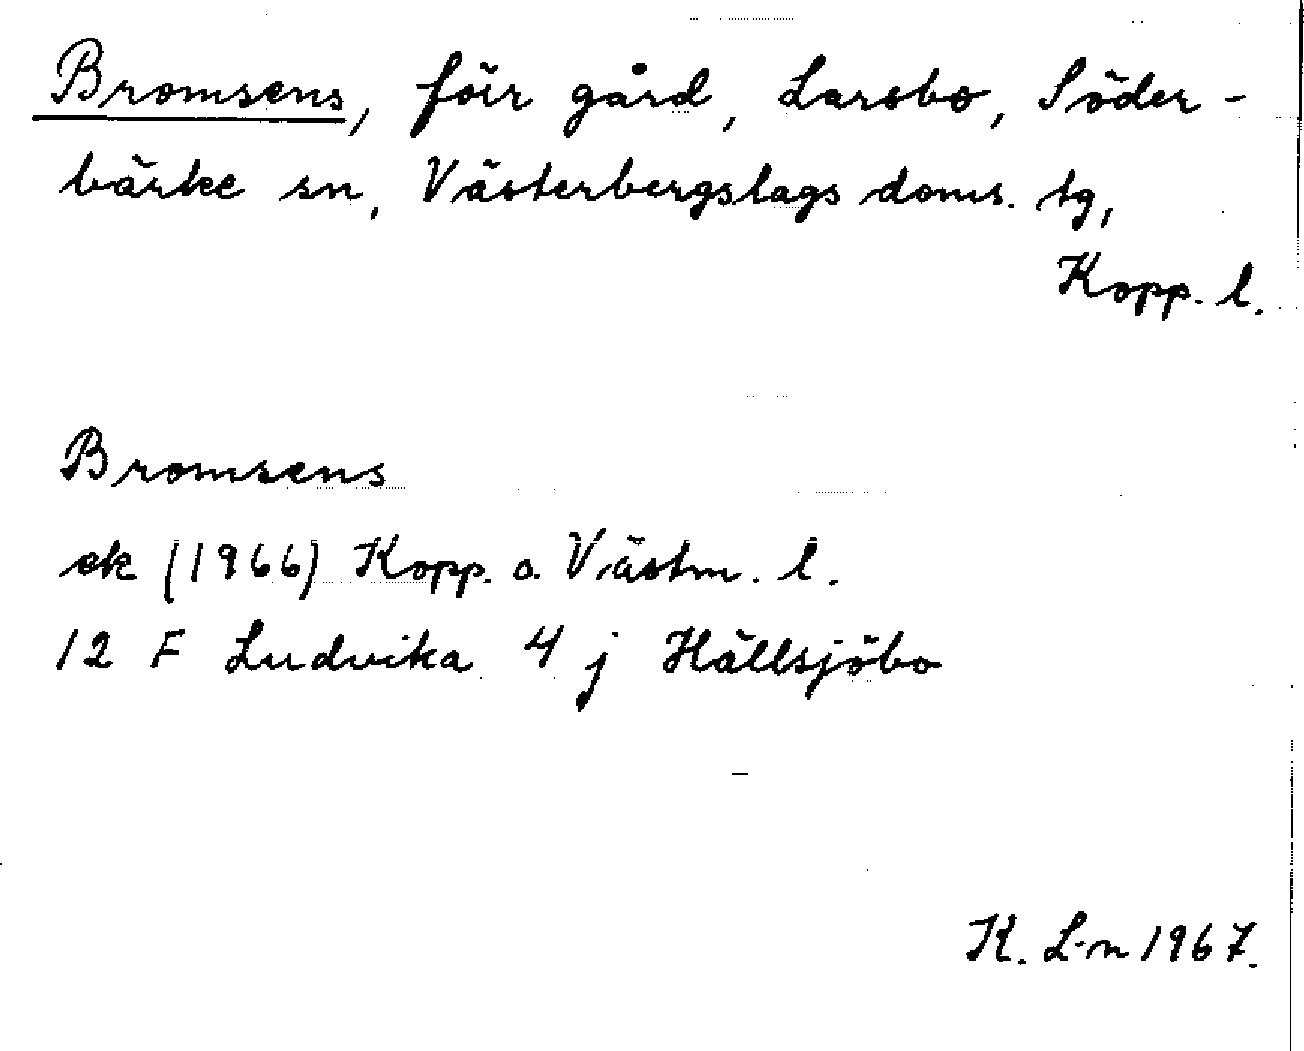 Bromsens, förr gård, Larsbo, Söder-
bärke sn, Västerbergslags doms. tg,
Kopp. l.
Bromsens
ek (1966) Kopp. o. Västm. l.
12 F Ludvika 4 j Hällsjöbo
K. L-n 1967.